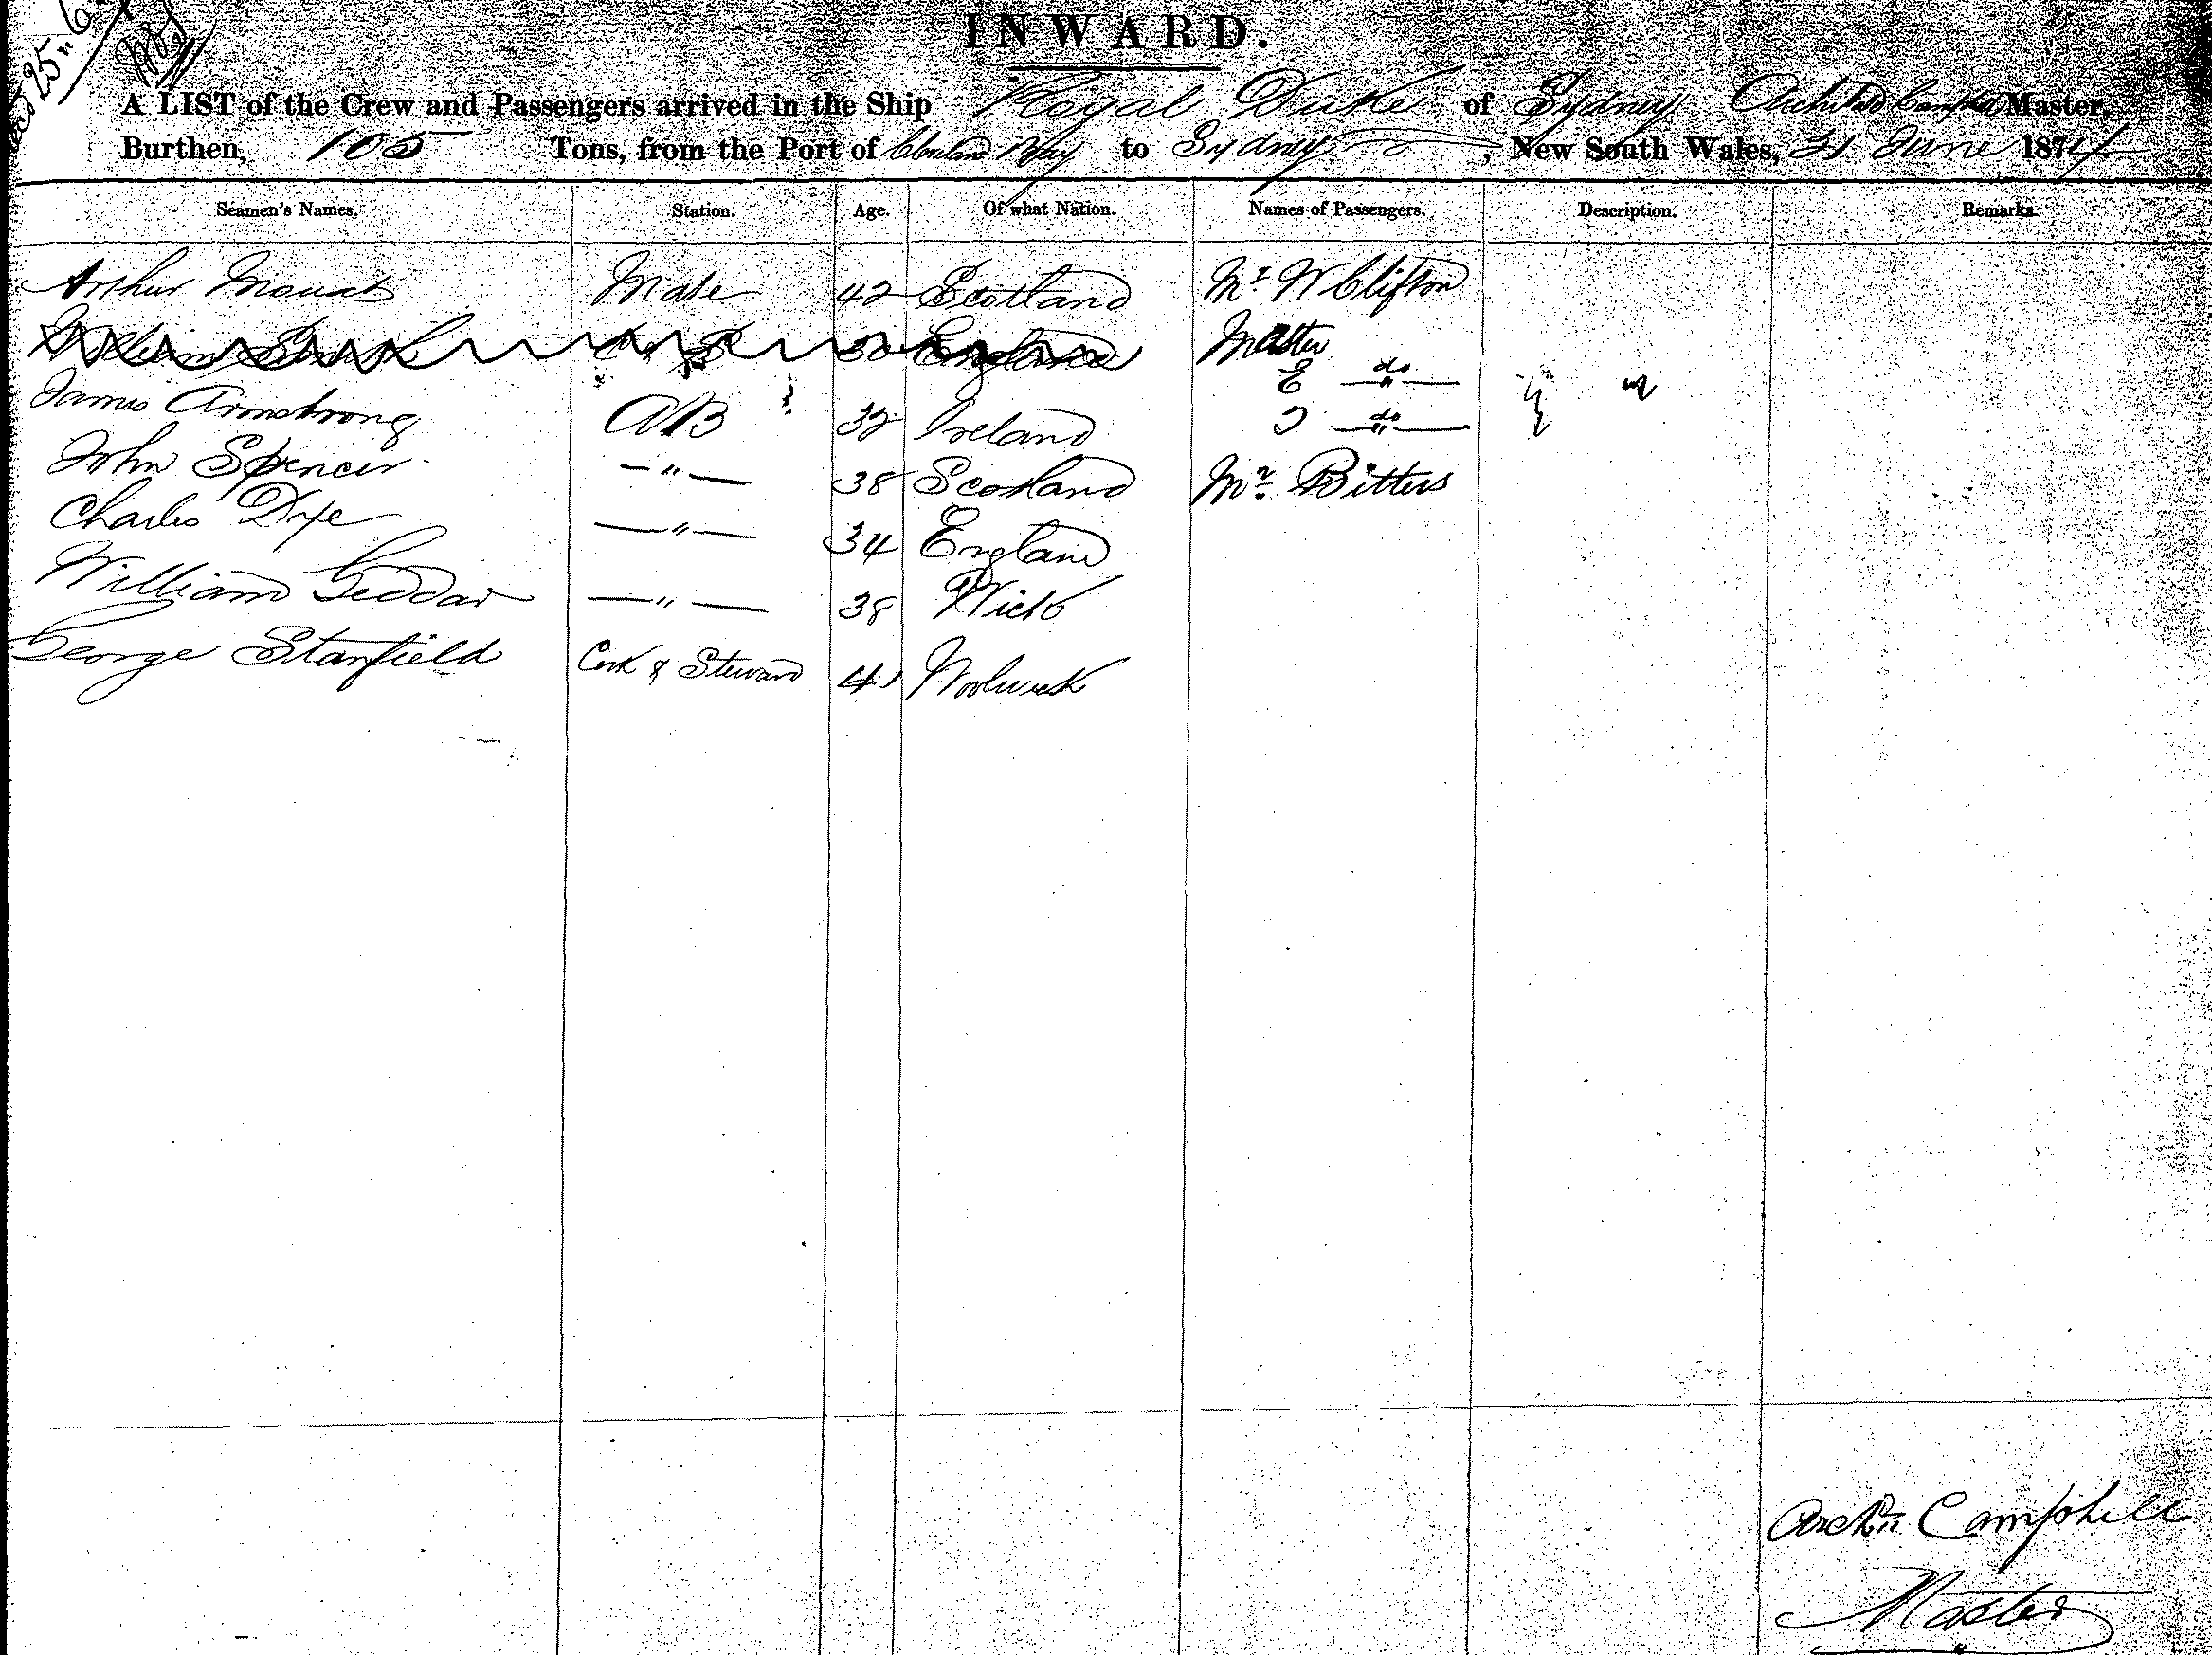 25 " 6
INWARD.
A LIST of the Crew and Passengers arrived in the Ship Royal Duke of Sydney Archibald Campbell Master,
Burthen, 105 Tons, from the Port of Bay to Sydney, New South Wales, June 187
Seamen's Names. Station. Age. Of what Nation. Names of Passengers. Description. Remarks.
Arthur Mouat Mate 42 Scotland Mr. W Clifton
William 30 England Master
E do "
James Armstrong AB 32 Ireland J do "
John Spencer " 38 Scotland Mr. Bitters
Charles Dye " 34 England
William Geddar " 38 Wick
George Stanfield Cook & Steward 41 Woolwich
Archd. Campbell
Master